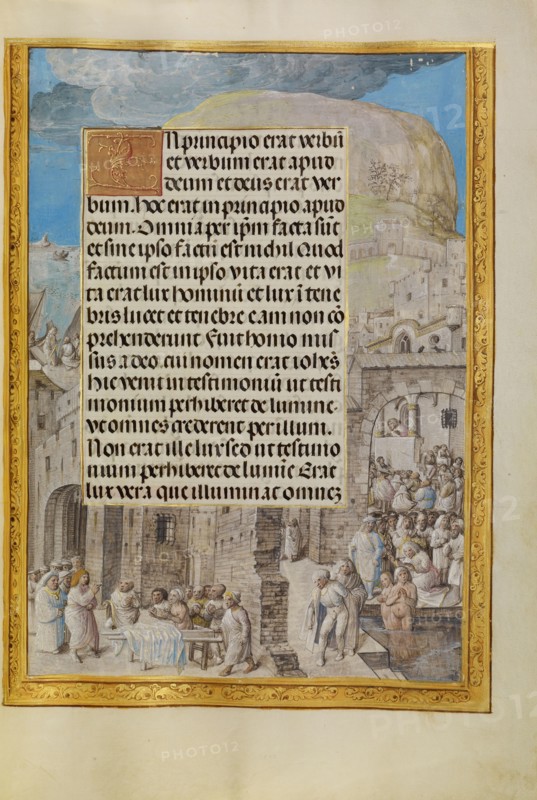 In principio erat verbū
et verbum erat apud
deum et deus erat ver
bum. hoc erat in principio apud
deum. Omnia per ip̄m facta sūt
et sine ipso factū est nichil Quod
factum est in ipso vita erat et vi
ta erat lux hominū et lux ī tene
bris lucet et tenebre eam non cō
prehenderunt. Fuit homo mis
sus a deo. cui nomen erat ioh̄es
hic venit in testimoniū ut testi
monium perhiberet de lumine.
vt omnes crederent per illum.
Non erat ille lux sed ut testimo
nium perhiberet de lumīe Erat
lux vera que illuminat omneʒ
PHOTO12